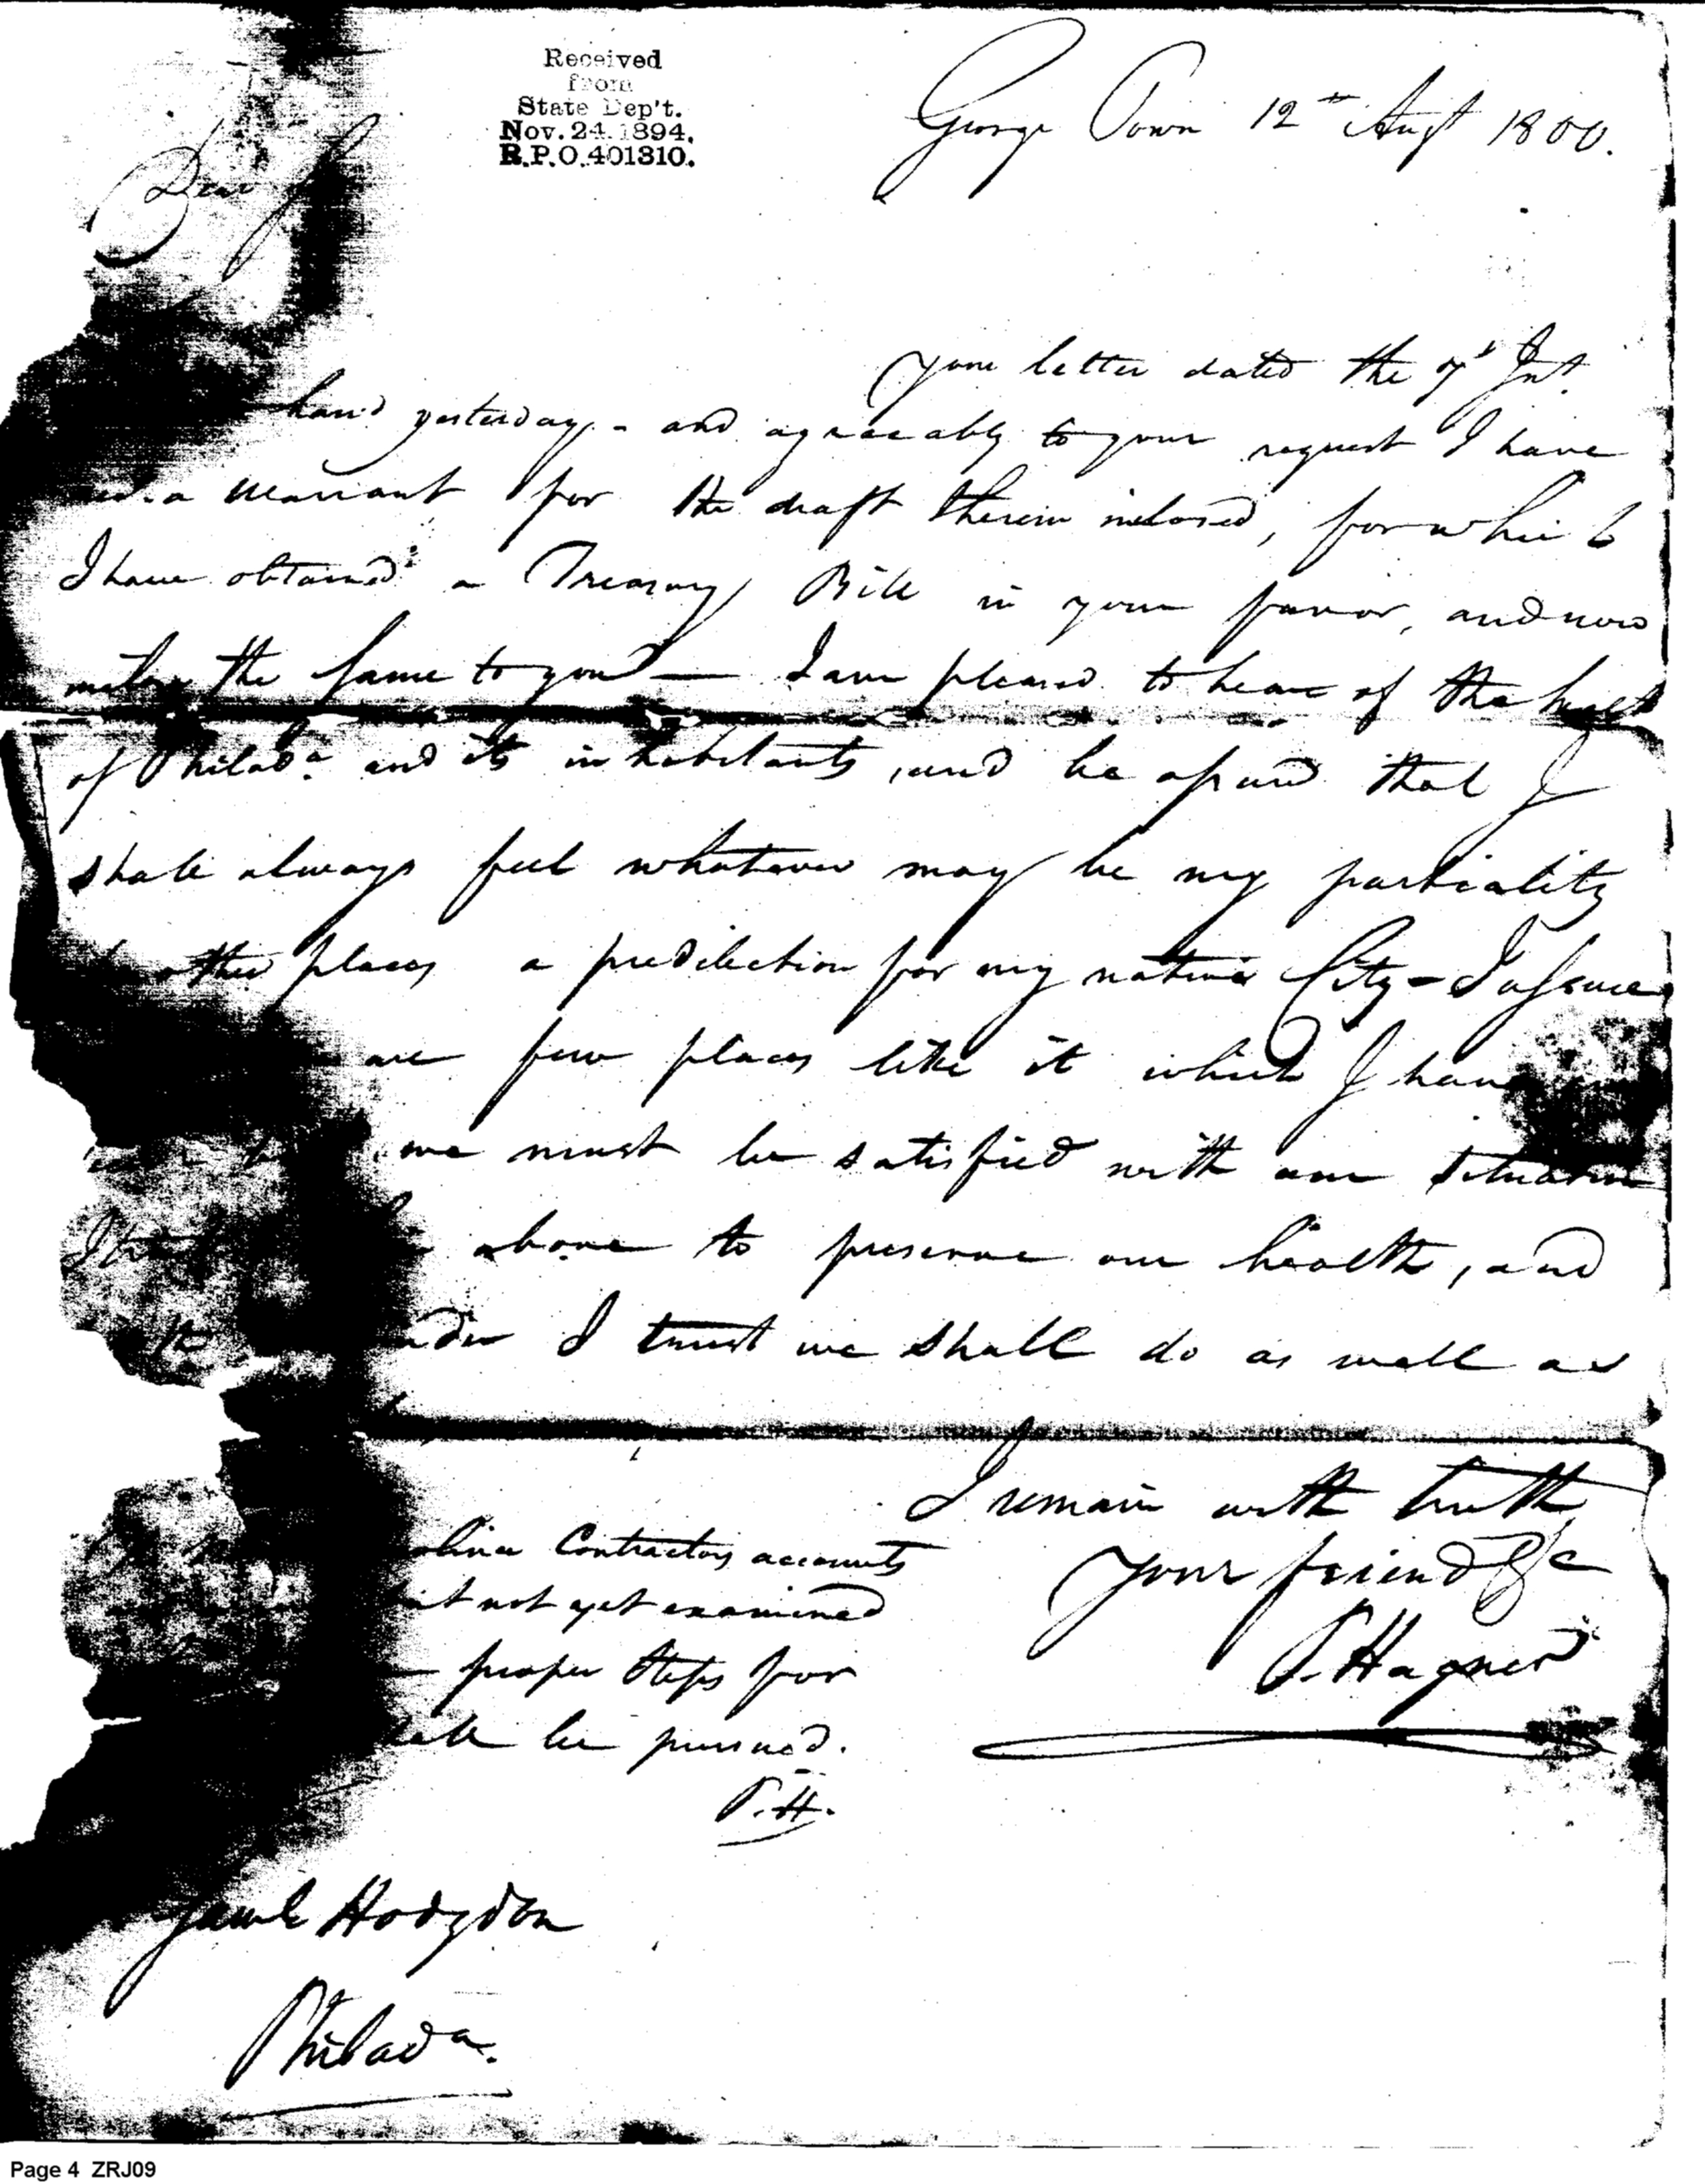 Received
from
State Dep't.
Nov. 24. 1894.
R.P.O. 401310.
George Town 12th Augt 1800.
Dear Sir
Your letter dated the 7th Inst.
hand yesterday - and agreeably to your request I have
a warrant for the draft therein inclosed, for which
I have obtained a Treasury Bill in your favor, and now
the same to you — I am pleased to hear of the health
of Philada and its inhabitants, and be assured that I
shall always feel whatever may be my partiality
other places a predilection for my native City - I assure
are few places like it which I have
we must be satisfied with our situation
above to preserve our health, and
I trust we shall do as well as
I remain with truth
Your friend &c
P. Hagner
Contractors accounts
not yet examined
— proper steps for
be pursued.
P.H.
Saml Hodgdon
Philada.
Page 4 ZRJ09